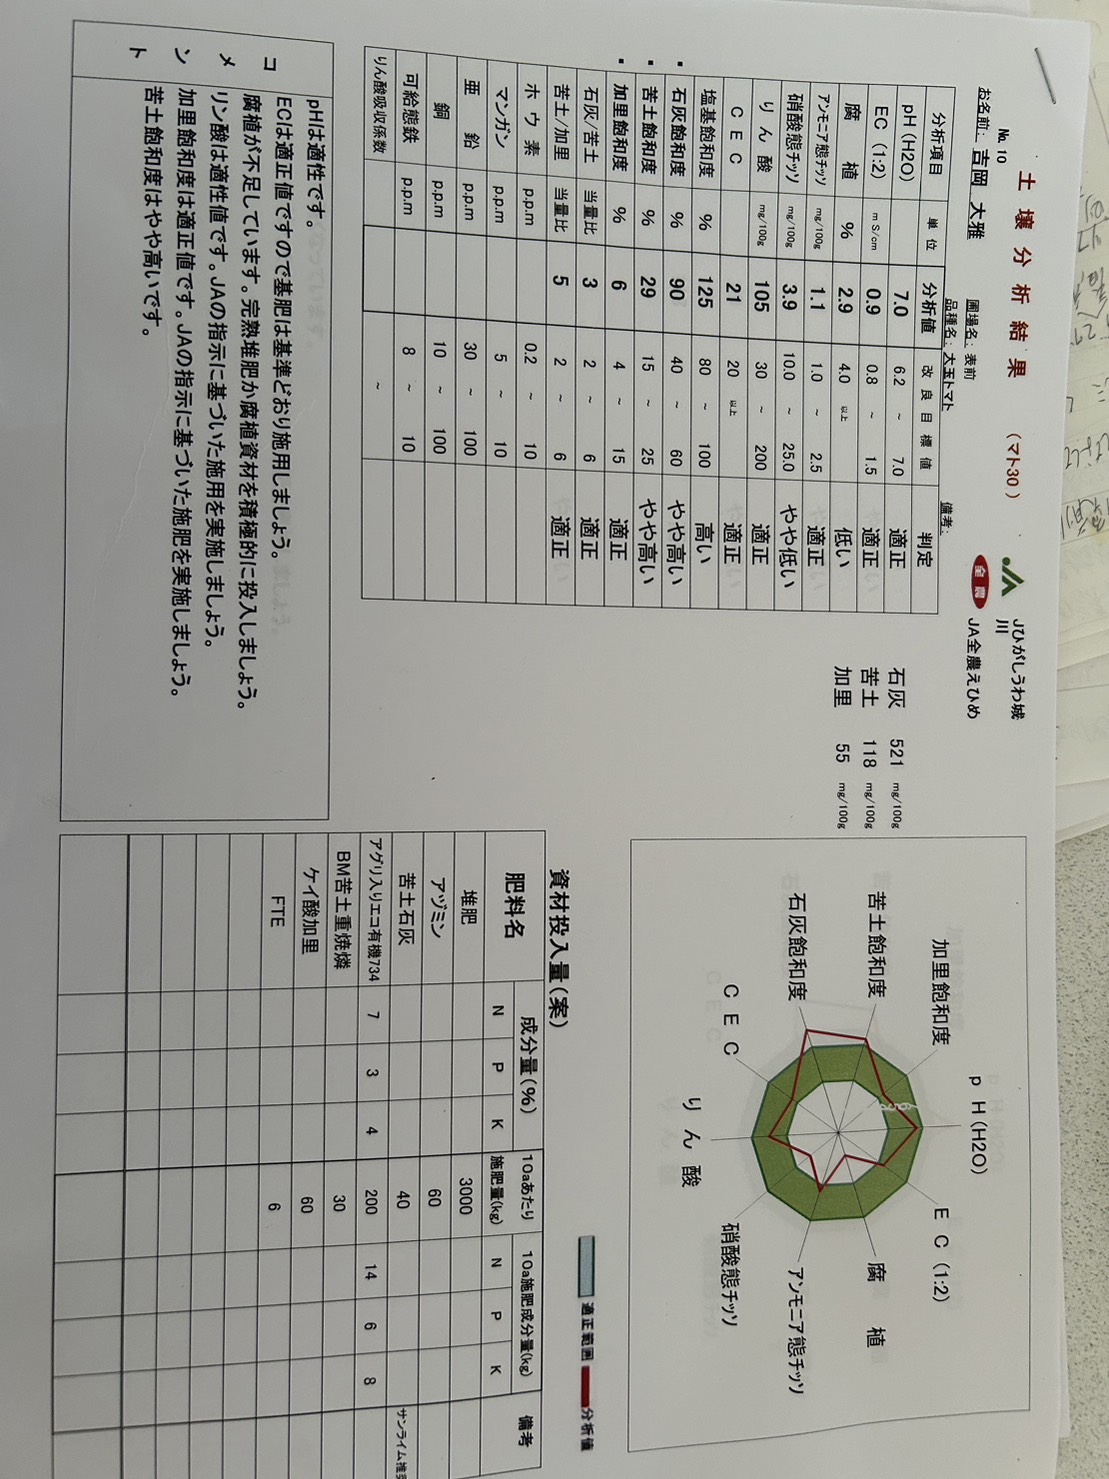 土壌分析結果 （マト30）
№ 10
お名前: 吉岡 大雅
圃場名: 表前
品種名: 大玉トマト
備考:
全農
Jひがしうわ城川
JA全農えひめ
分析項目 単位 分析値 改良目標値 判定
pH (H2O) 7.0 6.2 ~ 7.0 適正
EC (1:2) mS/cm 0.9 0.8 ~ 1.5 適正
腐植 % 2.9 4.0 以上 低い
アンモニア態チッソ mg/100g 1.1 1.0 ~ 2.5 適正
硝酸態チッソ mg/100g 3.9 10.0 ~ 25.0 やや低い
りん酸 mg/100g 105 30 ~ 200 適正
CEC 21 20 以上 適正
塩基飽和度 % 125 80 ~ 100 高い
石灰飽和度 % 90 40 ~ 60 やや高い
苦土飽和度 % 29 15 ~ 25 やや高い
加里飽和度 % 6 4 ~ 15 適正
石灰/苦土 当量比 3 2 ~ 6 適正
苦土/加里 当量比 5 2 ~ 6 適正
ホウ素 p.p.m 0.2 ~ 10
マンガン p.p.m 5 ~ 10
亜鉛 p.p.m 30 ~ 100
銅 p.p.m 10 ~ 100
可給態鉄 p.p.m 8 ~ 10
りん酸吸収係数 ~
石灰 521 mg/100g
苦土 118 mg/100g
加里 55 mg/100g
コメント
pHは適性です。
ECは適正値ですので基肥は基準どおり施用しましょう。
腐植が不足しています。完熟堆肥か腐植資材を積極的に投入しましょう。
リン酸は適性値です。JAの指示に基づいた施用を実施しましょう。
加里飽和度は適正値です。JAの指示に基づいた施肥を実施しましょう。
苦土飽和度はやや高いです。
pH(H2O)
EC(1:2)
腐植
アンモニア態チッソ
硝酸態チッソ
りん酸
CEC
石灰飽和度
苦土飽和度
加里飽和度
適正範囲 分析値
資材投入量(案)
肥料名 成分量(%) 10aあたり施肥量(kg) 10a施肥成分量(kg) 備考
N P K N P K
堆肥 3000
アヅミン 60
苦土石灰 40 サンライム推奨
アグリ入りエコ有機734 7 3 4 200 14 6 8
BM苦土重焼燐 30
ケイ酸加里 60
FTE 6